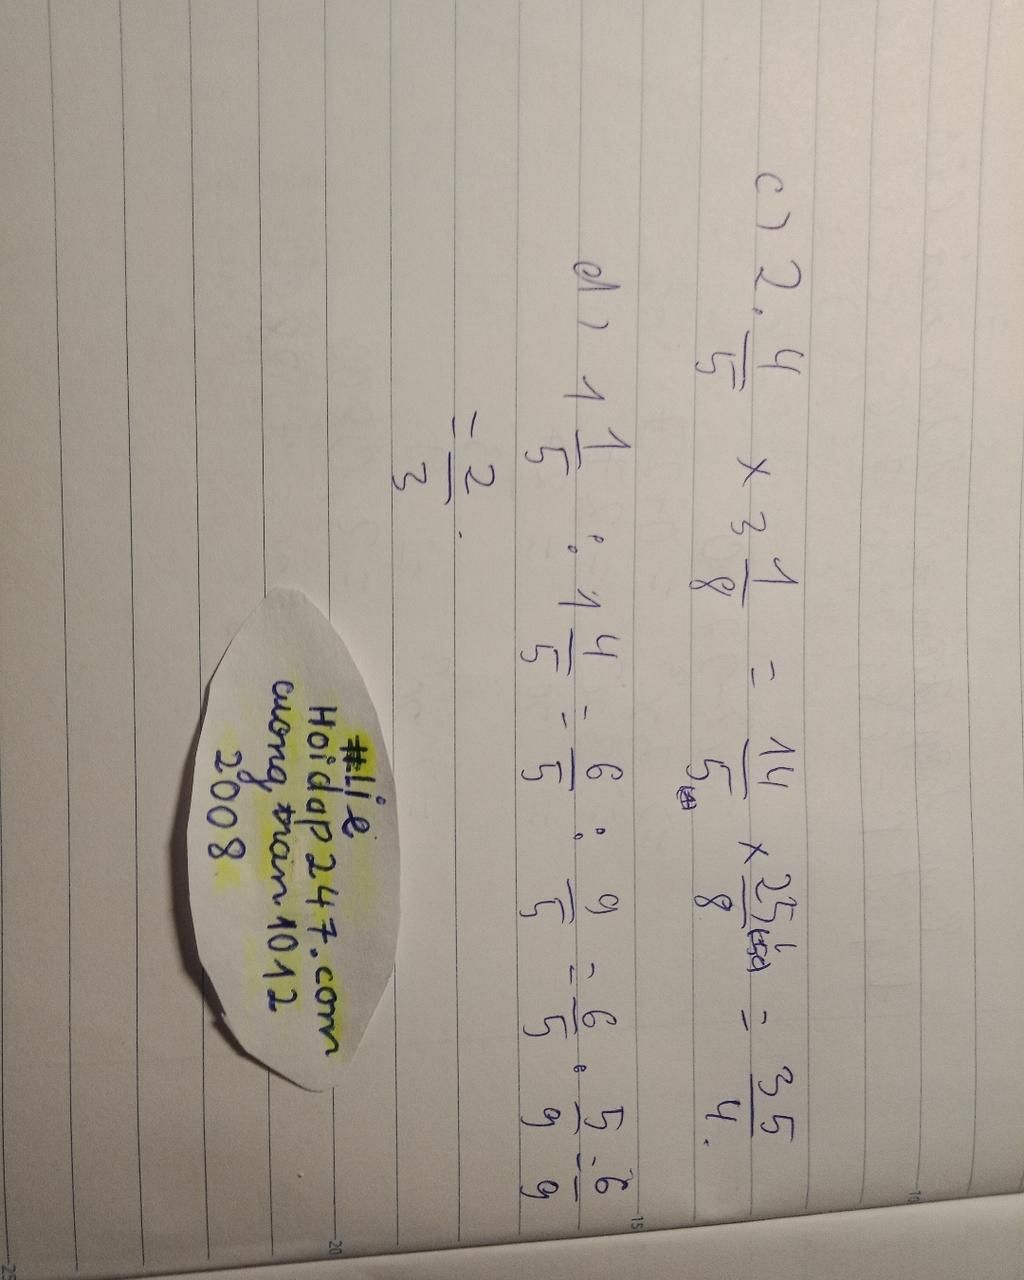 c) 2. 4/5 × 3 1/8 = 14/5 × 25/8 = 35/4.
d) 1 1/5 : 1 4/5 = 6/5 : 9/5 = 6/5 . 5/9 = 6/9
= 2/3.
#Lie
Hoidap247.com
cuongtrain1012
2008
10
15
20
25